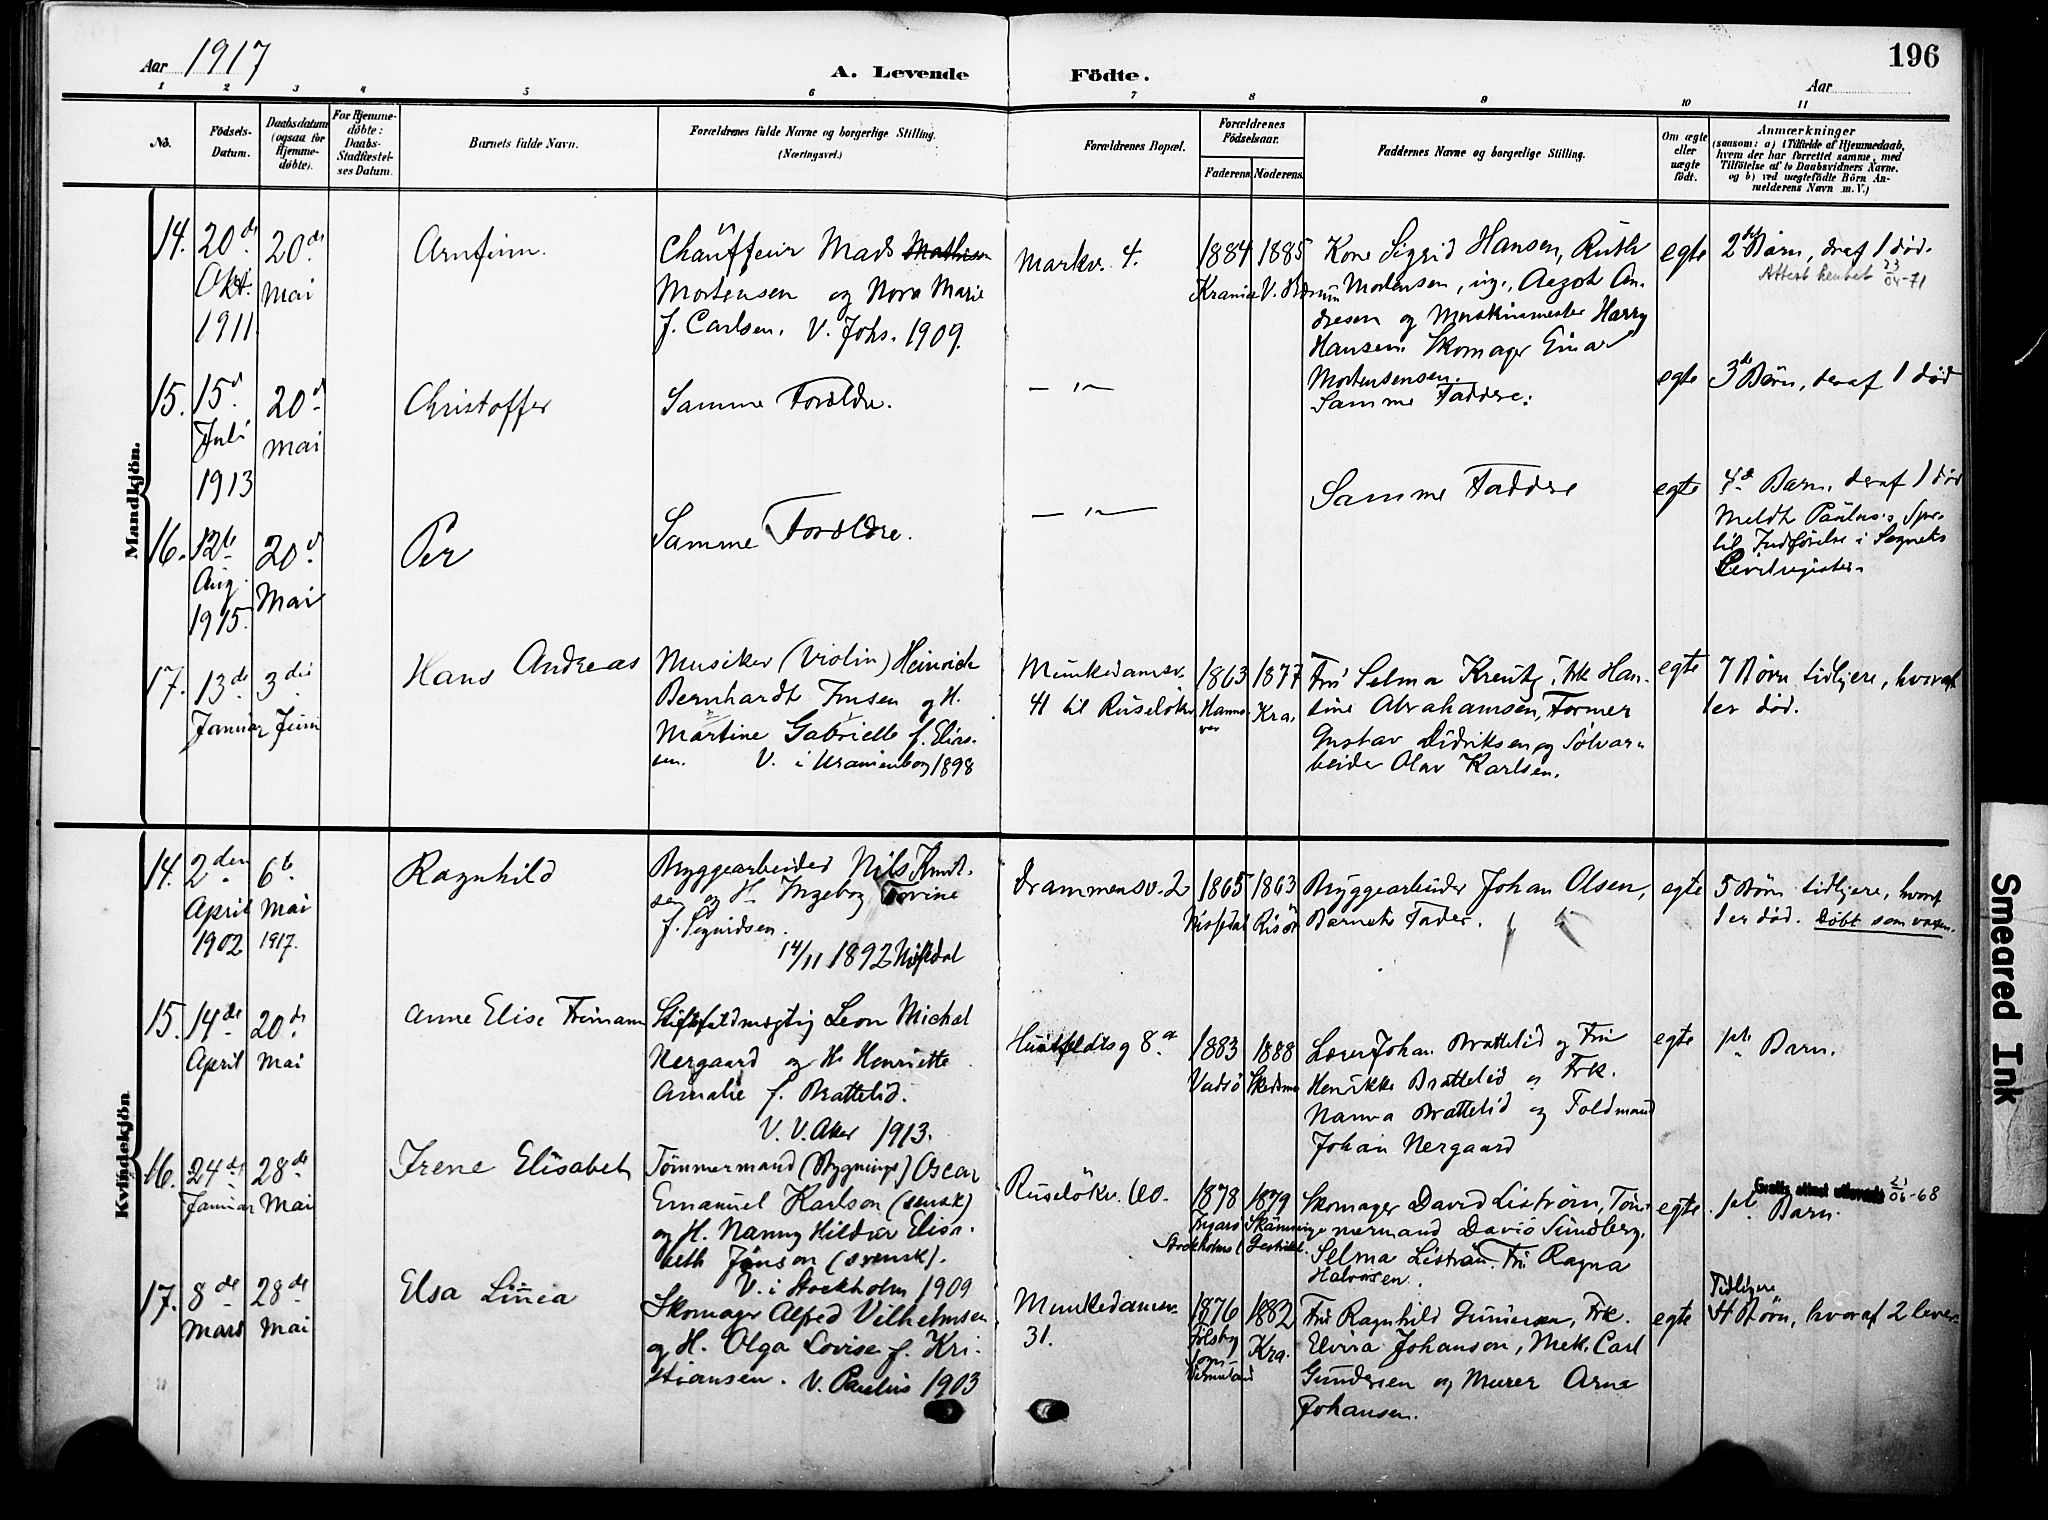 196
Aar 1917
A. Levende Födte.
Aar
1 2 3 4 5 6 7 8 9 10 11
No.
Födsels-
Datum.
Daabsdatum
(ogsaa for
Hjemme-
döbte).
For Hjemme-
döbte:
Daabs-
Stadfæstel-
ses Datum.
Barnets fulde Navn.
Forældrenes fulde Navne og borgerlige Stilling.
(Næringsvei.)
Forældrenes Bopæl.
Forældrenes
Födselsaar.
Faderens. Moderens.
Faddernes Navne og borgerlige Stilling.
Om ægte
eller
uægte
födt.
Anmærkninger
(saasom: a) i Tilfælde af Hjemmedaab,
hvem der har forrettet samme, med
Tilföielse af to Daabsvidners Navne.
og b) ved uægtefödte Börn An-
melderens Navn m. V.)
Mandkjön.
14.
20de
Okt.
1911
20de
Mai
Arnfinn.
Chauffeur Mads Mathisen
Mortensen og Nora Marie
f. Carlsen. V. Johs. 1909.
Markv. 4.
1884
Krania
1885
V. Bærum
Kone Sigrid Hansen, Ruth
Mortensen, ug., Aagot An-
dresen og Maskinmester Harry
Hansen. Skomager Einar
Mortensensen.
egte
2det Barn, deraf 1 død.
23/04-71
15.
15d
Juli
1913
20d
Mai
Christoffer
Samme Foreldre.
— " —
Samme Faddere.
egte
3de Barn, deraf 1 død
16.
12te
Aug.
1915
20d
Mai
Per
Samme Foreldre.
— " —
Samme Faddere
egte
4de Barn, deraf 1 død
Meldt Paulus's Spr.
til Indførelse i Sognets
17.
13de
Januar
3die
Juni
Hans Andreas
Musiker (Violin) Heinrich
Bernhardt Insen og H.
Martine Gabrielle f. Elias-
sen. V. i Uranienborg 1898
Munkedamsv.
41 til Ruseløkv.
1863
Hanno-
ver
1877
Kra.
Fru Selma Kreutz, Frk Han-
sine Abrahamsen, Former
Gustav Didriksen og Sølvar-
beider Olav Karlsen.
egte
7 Børn tidligere, hvoraf
1 er død.
Kvindekjön
14.
2den
April
1902
6te
Mai
1917.
Ragnhild
Bryggearbeider Nils Knut-
sen og H. Ingeborg Torine
f. Sigurdsen.
14/11 1892 Nissedal
Drammensv. 2
1865
Nissedal
1863
Risør
Bryggearbeider Johan Olsen,
Barnets Fader.
egte
5 Børn tidligere, hvoraf
1 er død. Døbt som voxen.
15.
14de
April
20de
Mai
Anne Elise Frimann
Stiftsfuldmægtig Leon Michal
Nergaard og H. Henriette
Amalie f. Brattelid.
V. V. Aker 1913.
Huitfeldtsg 8a
1883
Vadsø
1888
Skedsmo
Lærer Johan Brattelid og Fru
Henrikke Brattelid og Frk.
Nanna Brattelid og Toldmand
Johan Nergaard
egte
1ste Barn.
16.
24de
Januar
28de
Mai
Irene Elisabet
Tømmermand (Bygnings) Oscar
Emanuel Karlson (svensk)
og H. Nanny Hildur Elisa-
beth Jönson (svensk).
V. i Stockholm 1909
Ruseløkv. 60.
1878
Stockholms l.
1879
Skänninge
Skomager David Liström, Tøm-
mermand David Sundberg,
Selma Liström. Fru Ragna
Halvorsen.
egte
Gratis attest utferdit 21/06-68
1ste Barn.
17.
8de
Mars
28de
Mai
Elsa Linnea
Skomager Alfred Vilhelmsen
og H. Olga Lovise f. Kri-
stiansen. V. Paulus 1903
Munkedamsv.
31.
1876
1882
Kra.
Fru Ragnhild Gundersen, Frk.
Elvira Johanson, Mek. Carl
Gundersen og Murer Arne
Johansen.
egte
Tidligere
4 Børn, hvoraf 2 lever
Smeared Ink